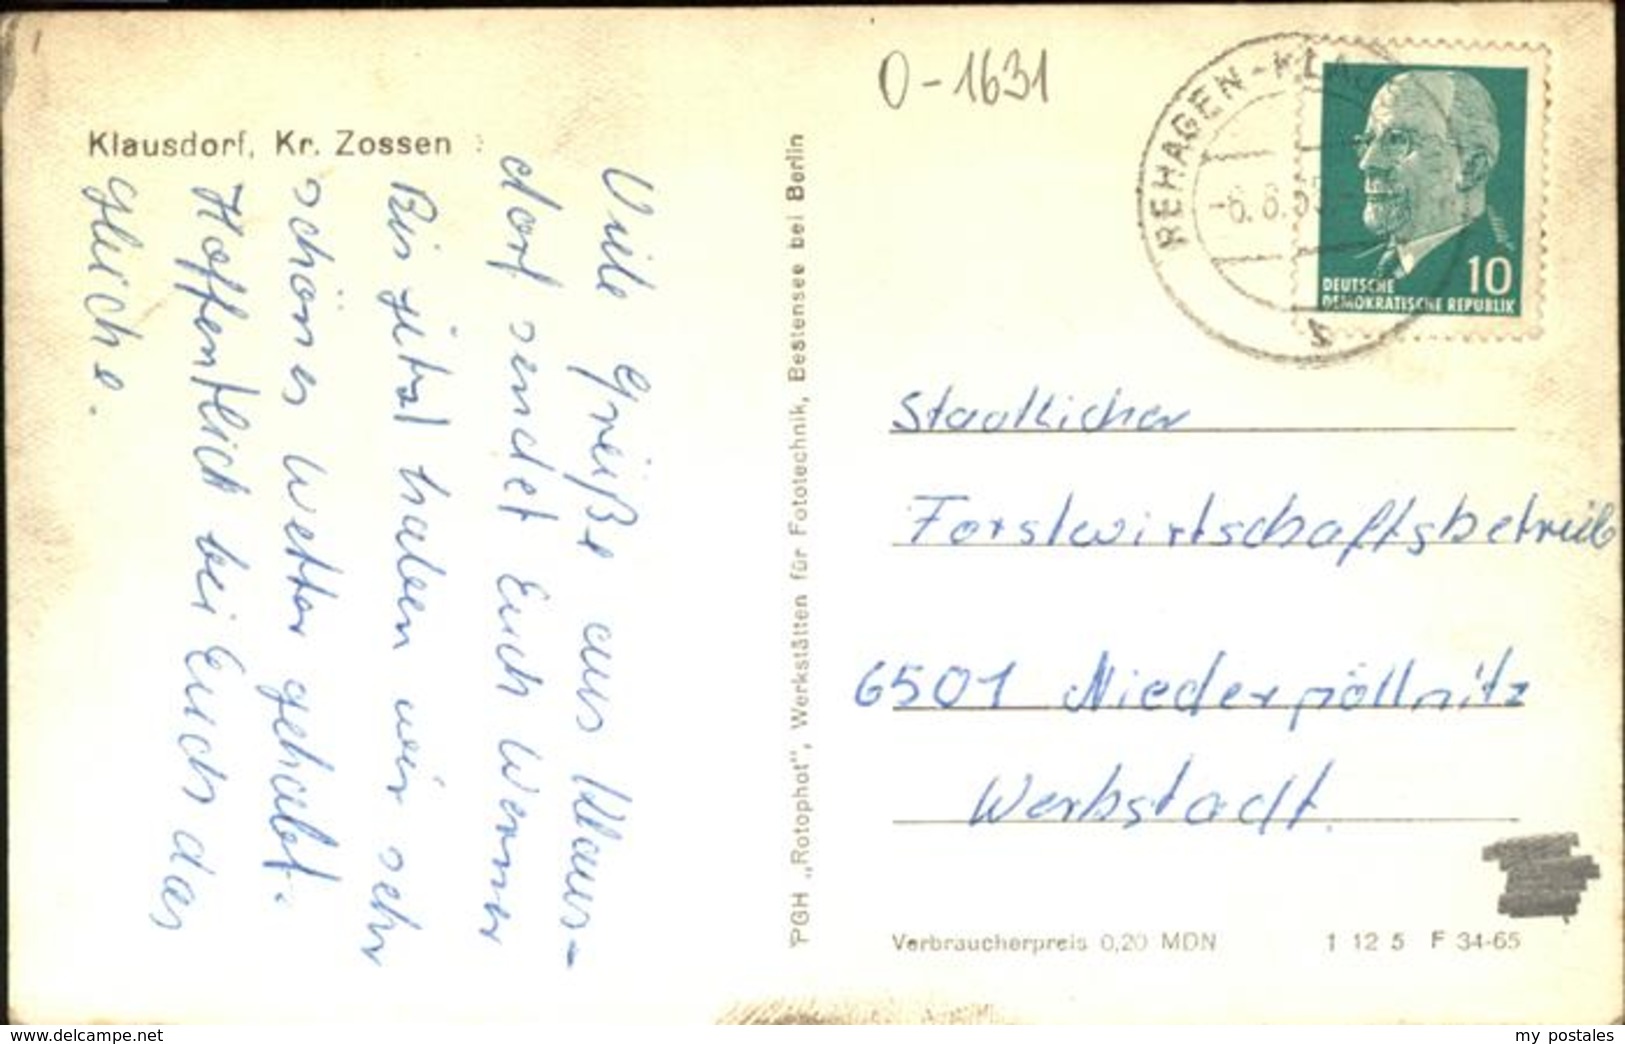 O-1631
Klausdorf, Kr. Zossen
Viele Grüße aus Klaus-
dorf sendet Euch Werner
Bis jetzt haben wir sehr
schönes Wetter gehabt.
Hoffentlich bei Euch das
gleiche.
PGH „Rotophot", Werkstätten für Fototechnik, Bestensee bei Berlin
REHAGEN-KLA
-6.8.65
DEUTSCHE
DEMOKRATISCHE REPUBLIK
10
Staatlicher
Forstwirtschaftsbetrieb
6501 Niederpöllnitz
Werkstadt.
Verbraucherpreis 0,20 MDN 1 12 5 F 34-65
www.delcampe.net
my postales